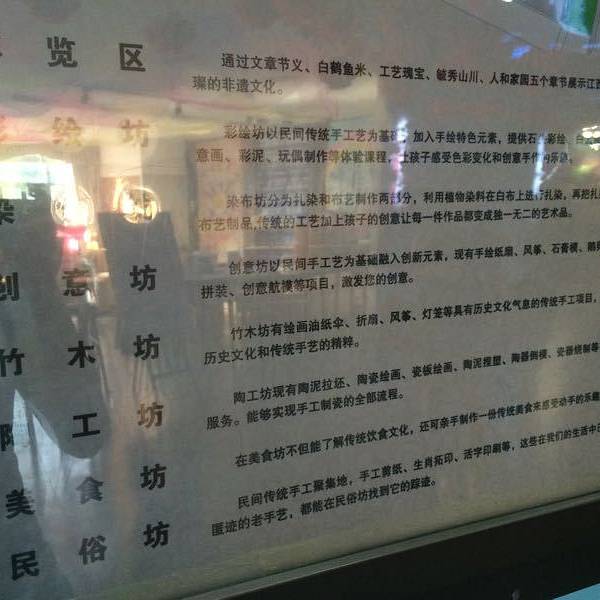 览区
通过文章节义、白鹤鱼米、工艺瑰宝、毓秀山川、人和家园五个章节展示江西
璨的非遗文化。
彩绘坊
彩绘坊以民间传统手工艺为基础，加入手绘特色元素，提供石
意画、彩泥、玩偶制作等体验课程，让孩子感受色彩变化和创意手作的乐趣。
染
坊
染布坊分为扎染和布艺制作两部分，利用植物染料在白布上进行扎染，再把扎
布艺制品,传统的工艺加上孩子的创意让每一件作品都变成独一无二的艺术品。
创意坊
创意坊以民间手工艺为基础融入创新元素，现有手绘纸扇、风筝、石膏模、鹅
拼装、创意航模等项目，激发您的创意。
竹木坊
竹木坊有绘画油纸伞、折扇、风筝、灯笼等具有历史文化气息的传统手工项目，
历史文化和传统手艺的精粹。
陶工坊
陶工坊现有陶泥拉坯、陶瓷绘画、瓷板绘画、陶泥捏塑、陶器倒模、瓷器烧制等
服务。能够实现手工制瓷的全部流程。
美食坊
在美食坊不但能了解传统饮食文化，还可亲手制作一份传统美食来感受动手的乐趣
民俗坊
民间传统手工聚集地，手工剪纸、生肖拓印、活字印刷等，这些在我们的生活中已
匿迹的老手艺，都能在民俗坊找到它的踪迹。